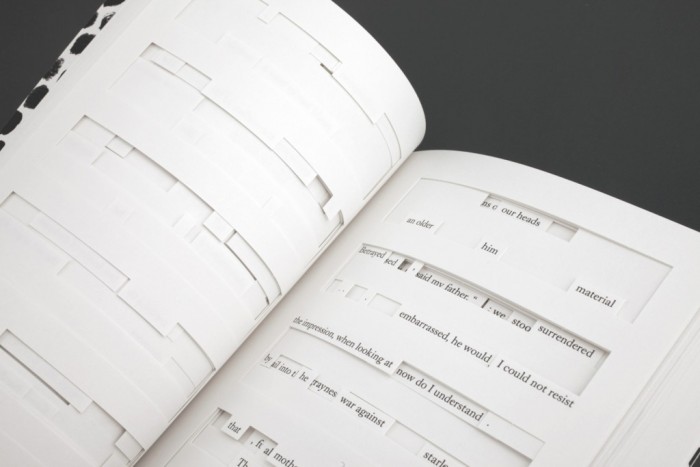 our heads
an older
him
material
betrayed said my father. we stoo surrendered
embarrassed, he would, I could not resist
the impression, when looking at now do I understand .
into t he graynes war against
that al moth